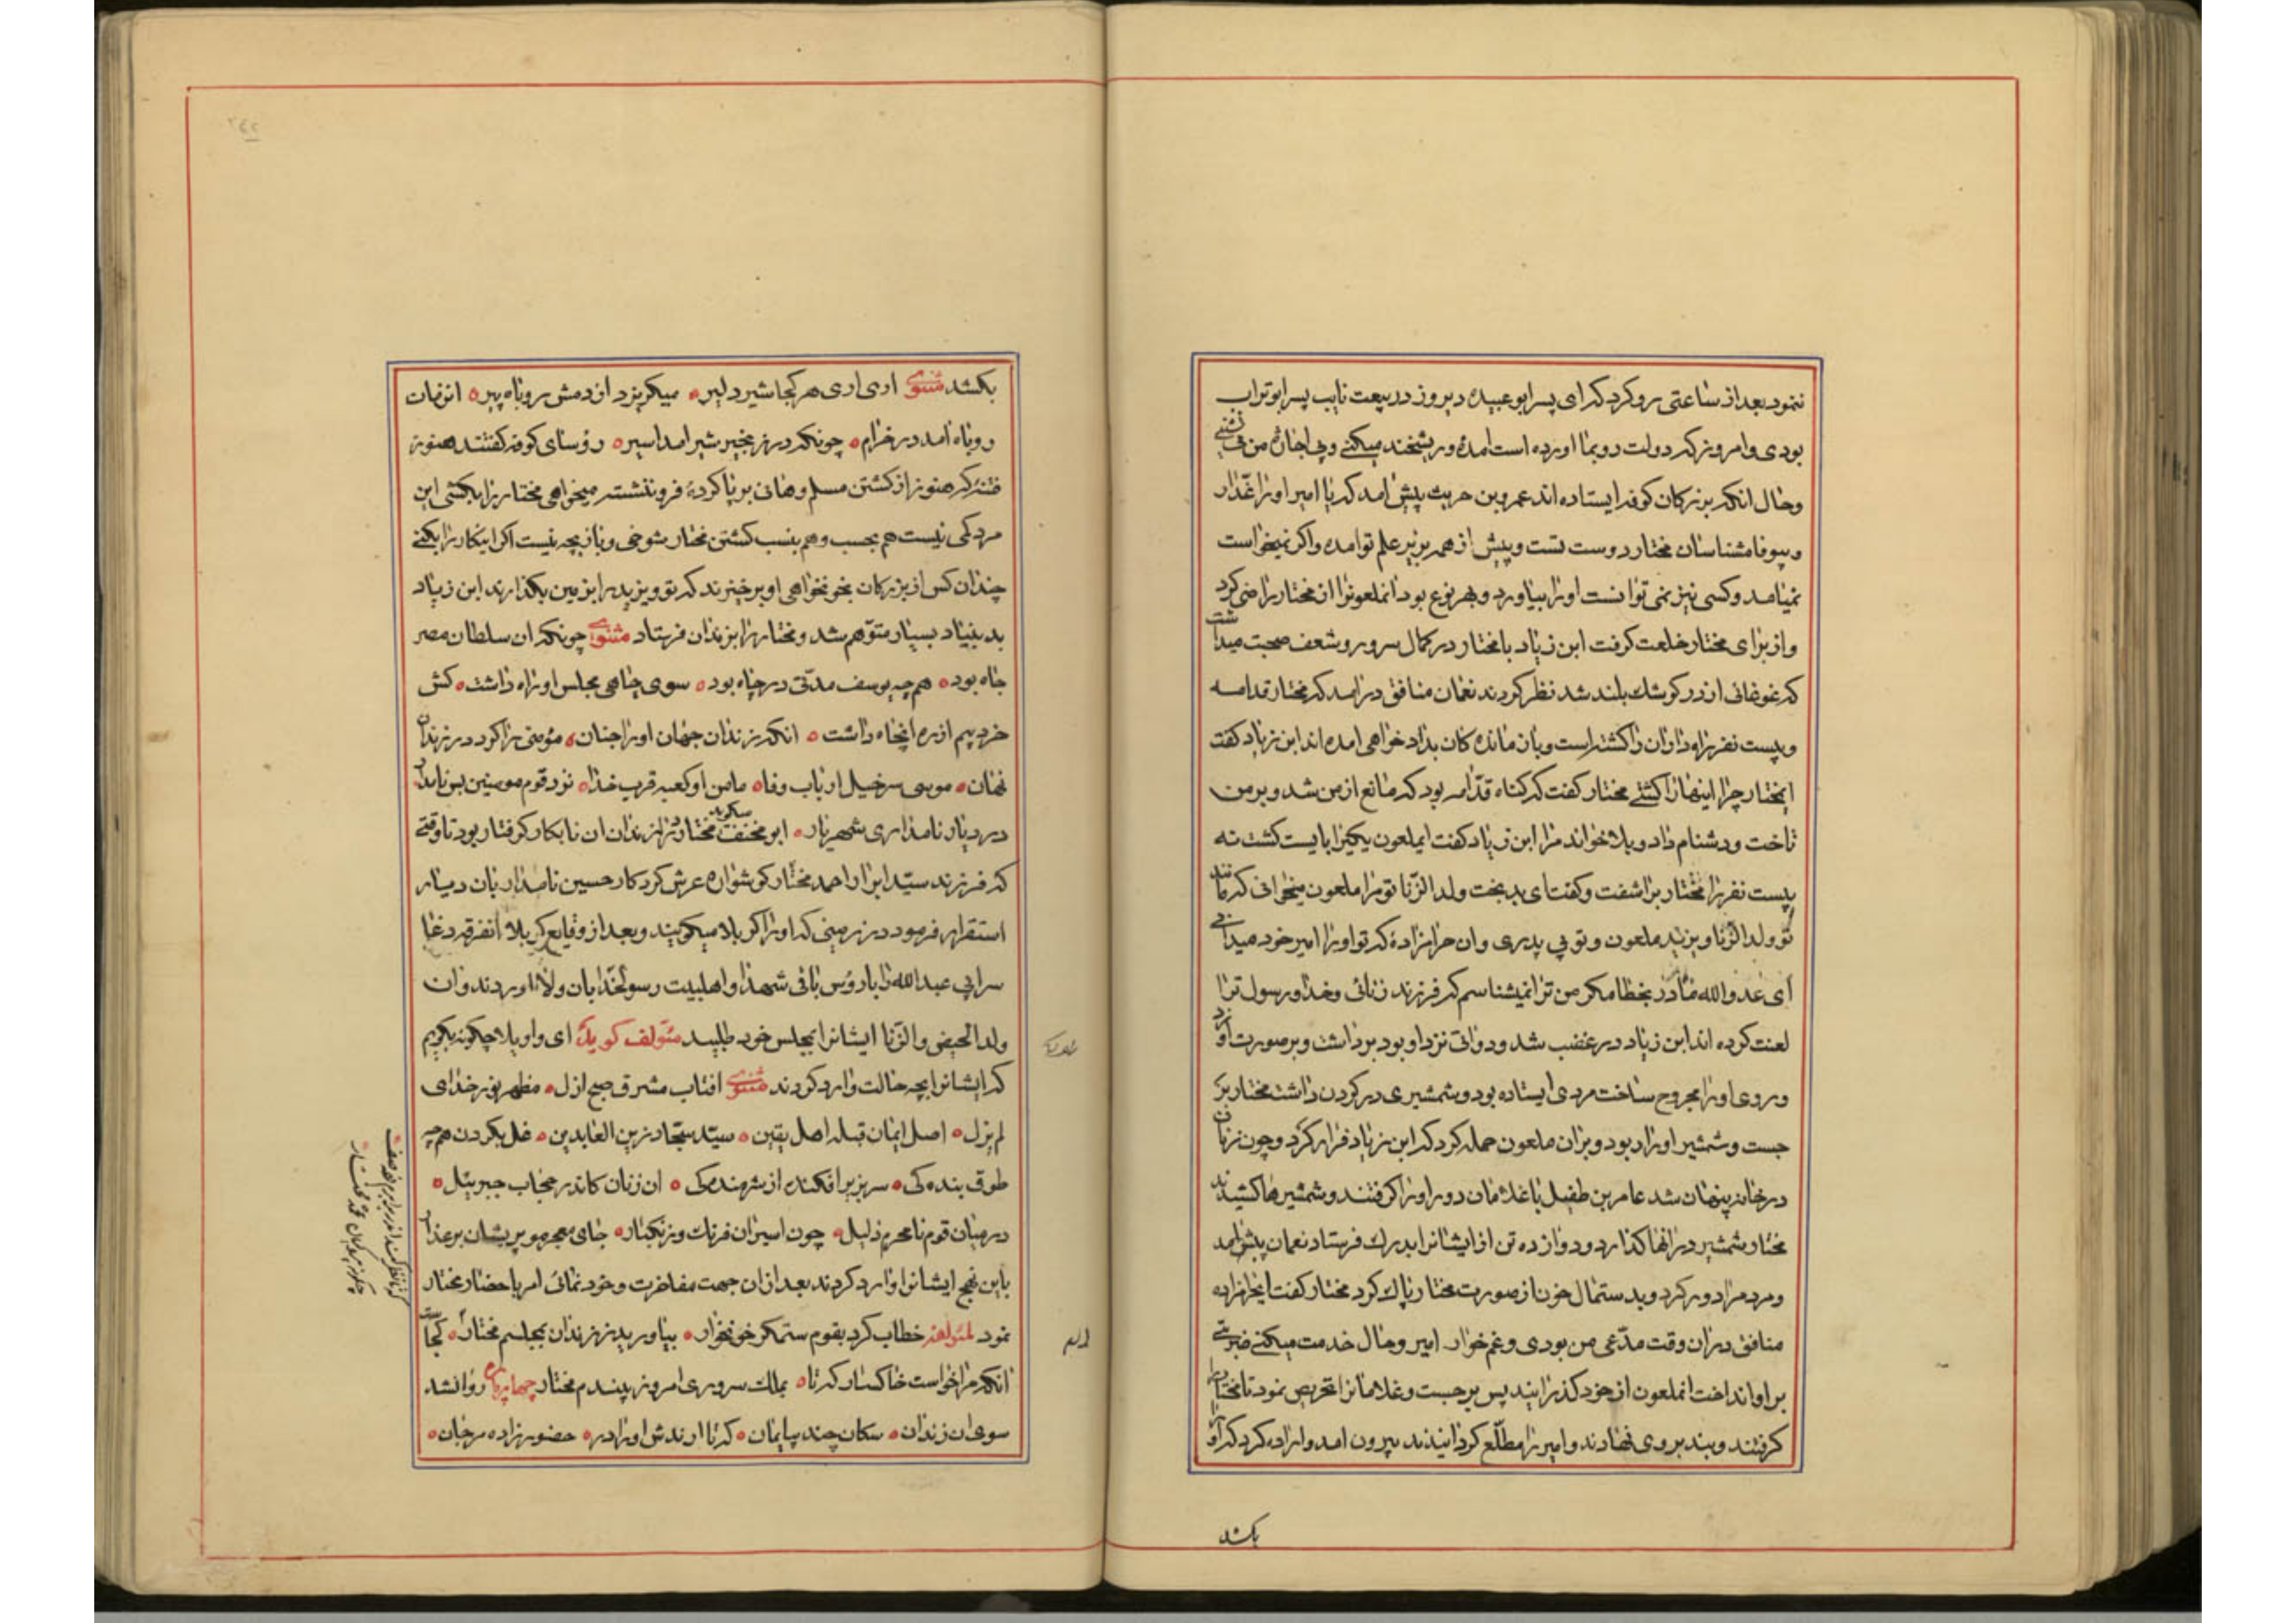 ننمود بعد از ساعتی رو کرد که ای پسر ابو عبیده دیروز در بیعت نایب پسر ابو تراب
بودی و امروز که دولت رو بما اورده است امدهٔ و ریشخند میکنی و بی اجازهٔ من می نشینی
و حال انکه بزرکان کوفه ایستاده اند عمرو بن حریث پیش امد که یا امیر او را غدار
و بیوفا مشناسان مختار دوست تست و پیش از همه بزیر علم تو امده و اکر نمیخواست
نمیامد و کسی نیز نمی توانست او را بیاورد و بهر نوع بود انملعونرا از مختار راضی کرد
و از برای مختار خلعت کرفت ابن زیاد با مختار در کمال سرور و شعف صحبت میداشت
که غوغائی از در کوشک بلند شد نظر کردند نعمان منافق درامد که مختار قدامه
و بیست نفر را کشته است و باز مانده کان بداد خواهی امده اند ابن زیاد کفت
ایمختار چرا اینها را کشتی مختار کفت که کناه قدامه بود که مانع از من شد و بر من
تاخت و دشنام داد و بلا خواند مرا ابن زیاد کفت ایملعون یکیرا بایست کشت نه
بیست نفر را مختار براشفت و کفت ای بد بخت ولد الزنا تو مرا ملعون میخوانی که مانند
تو ولد الزنا و یزید ملعون و تو بی پدری و ان حرامزادهٔ که تو او را امیر خود میدانی
ای عدو الله مادر بخطا مکر من ترا نمیشناسم که فرزند زنائی و خدا و رسول ترا
لعنت کرده اند ابن زیاد در غضب شد و دواتی نزد او بود برداشت و بر صورت او زد
و روی او را مجروح ساخت مردی ایستاده بود و شمشیری در کردن داشت مختار بر
جست و شمشیر او را ربود و بران ملعون حمله کرد که ابن زیاد فرار کرد و چون زنان
در خانه پنهان شد عامر بن طفیل با غلامان دور او را کرفتند و شمشیر ها کشیدند
مختار شمشیر در انها کذارد و دوازده تن از ایشانرا بدرک فرستاد نعمان پیش امد
و مردم را دور کرد و بدستمال خون از صورت مختار پاک کرد مختار کفت ایحرامزاده
منافق دران وقت مدعی من بودی و غم خوار امیر و حال خدمت میکنی ضربتی
بر او انداخت انملعون از خود کذرانید پس بر جست و غلامانرا تحریص نمود تا مختار را
کرفتند و بند بر وی نهادند و امیر را مطلع کردانیدند بیرون امد و اراده کرد که او را
بکشد
بکشد مثنوی اری اری هر کجا شیر دلیر میکریزد از دمش روباه پیر ان زمان
روباه امد در خرام چونکه در زنجیر شیر امد اسیر رؤسای کوفه کفتند هنوز
فتنهٔ که هنوز از کشتن مسلم و هانی بر پا کردهٔ فرو ننشسته میخواهی مختار را بکشی این
مرد کمی نیست هم بحسب و هم بنسب کشتن مختار شوخی و بازیچه نیست اکر اینکار را بکنی
چندان کس از بزرکان بخونخواهی او برخیزند که تو و یزید را بزمین بکذارند ابن زیاد
بد بنیاد بسیار متوهم شد و مختار را بزندان فرستاد مثنوی چونکه ان سلطان مصر
جاه بود همچه یوسف مدتی در چاه بود سوی چاهی مجلس او راه داشت کش
خرد بیم از ره انجاه داشت انکه زندان جهان او را جنان مؤمنی را کرد در زندان
نهان موسی سر خیل ارباب وفا مامن او کعبه قرب خدا نزد قوم مومنین بس نامدار
در دیار نامداری شهریار ابو مخنف میکوید مختار در زندان ان نابکار کرفتار بود تا وقتی
که فرزند سید ابرار احمد مختار کوشواره عرش کردکار حسین نامدار بان دیار
استقرار فرمود در زمینی که او را کربلا میکویند و بعد از وقایع کربلا انفرقه دغا
سر ابی عبد الله را با رؤس باقی شهدا و اهلبیت رسولخدا بان ولا اوردند و ان
ولد الحیض و الزنا ایشانرا بمجلس خود طلبید مئولف کوید ای واویلا چکونه بکویم
که ایشانرا بچه حالت وارد کردند مثنوی افتاب مشرق صبح ازل مظهر نور خدای
لم یزل اصل ایمان قبله اهل یقین سید سجاد زین العابدین غل بکردن همچه
طوق بنده کی سر بزیر افکنده از شرمنده کی ان زنان کاندر حجاب جبرئیل
در میان قوم نامحرم ذلیل چون اسیران فرنک و زنکبار جای معجر مو پریشان بر عذار
باین نهج ایشانرا وارد کردند بعد از ان جهت مفاخرت و خود نمائی امر باحضار مختار
نمود لمئولفه خطاب کرد بقوم ستمکر خونخوار بیاورید ز زندان بمجلسم مختار کجاست
انکه مرا خواست خاکسار کند بملک سروری امروز بیندم مختار روانشد
سوی ان زندان سکان چند بیایمان حضور زاده مرجان